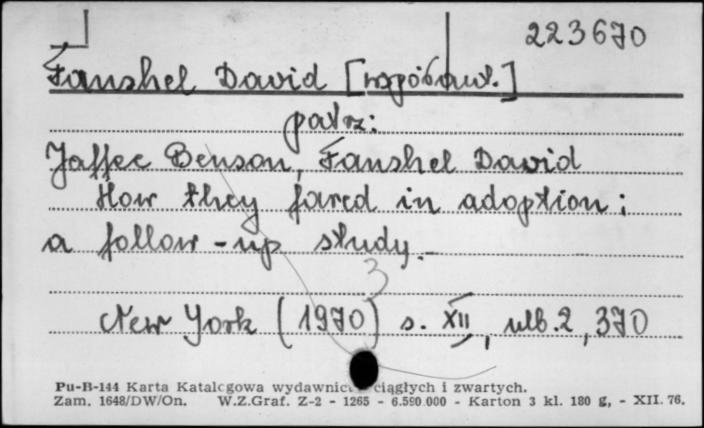 223670
Fanshel David [współaut.]
patrz:
Jaffee Benson, Fanshel David
How they fared in adoption:
a follow-up study.
3
New York (1970) s. XII, ulb. 2, 370
Pu-B-144 Karta Katalogowa wydawnictw ciągłych i zwartych.
Zam. 1648/DW/On. W.Z.Graf. Z-2 - 1265 - 6.590.000 - Karton 3 kl. 180 g, - XII. 76.